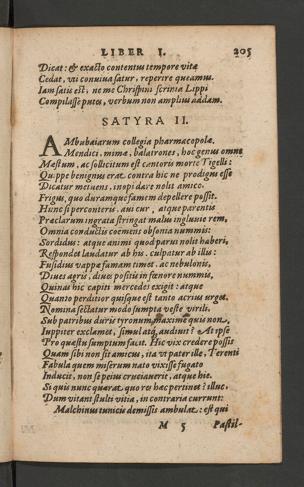 LIBER I. 205
Dicat: & exacto contentus tempore vitæ
Cedat, vti conuiua satur, reperire queamus.
Iam satis est; ne me Chrispini scrinia Lippi
Compilasse putes, verbum non amplius addam.
SATYRA II.
AMbubaiarum collegia pharmacopolæ,
Mendici, mimæ, balatrones, hoc genus omne
Mæstum, ac sollicitum est cantoris morte Tigelli:
Quippe benignus erat. contra hic ne prodigus esse
Dicatur metuens, inopi dare nolit amico,
Frigus, quo duramque famem depellere possit.
Hunc si perconteris, aui cur, atque parentis
Præclaram ingrata stringat malus ingluuie rem,
Omnia conductis coëmens obsonia nummis:
Sordidus: atque animi quod parui nolit haberi,
Respondet. laudatur ab his. culpatur ab illis:
Fusidius vappæ famam timet, ac nebulonis,
Diues agris, diues positis in fœnore nummis,
Quinas hic capiti mercedes exigit: atque
Quanto perditior quisque est tanto acrius urget.
Nomina sectatur modo sumpta veste virili,
Sub patribus duris tyronum, maxime quis non,
Iuppiter exclamet, simul atq; audiuit? At ipse
Pro quæstu sumptum facit. Hic vix credere possis
Quam sibi non sit amicus, ita vt pater ille, Terenti
Fabula quem miserum nato vixisse fugato
Inducit, non se peius cruciauerit, atque hic.
Si quis nunc quærat, quo res hæc pertinet? illuc,
Dum vitant stulti vitia, in contraria currunt:
Malchinus tunicis demissis ambulat: est qui
M 5 Pastil-